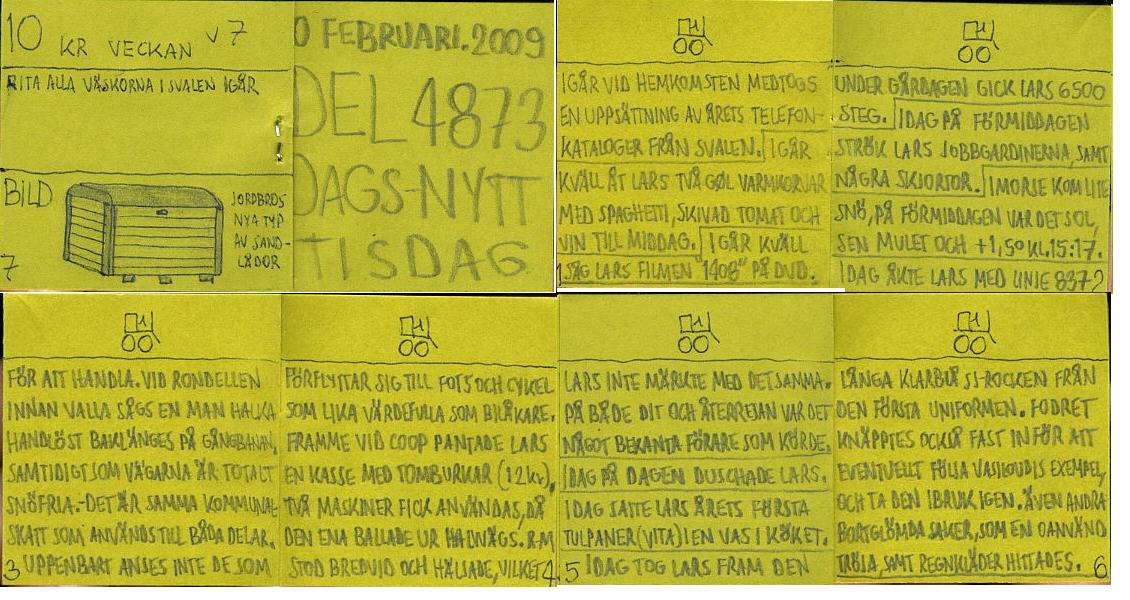 10 KR VECKAN V 7
RITA ALLA VÄSKORNA I SVALEN IGÅR
BILD
7
JORDBROS
NYA TYP
AV SAND-
LÅDOR
0 FEBRUARI.2009
DEL 4873
DAGS-NYTT
TISDAG
IGÅR VID HEMKOMSTEN MEDTOGS
EN UPPSÄTTNING AV ÅRETS TELEFON-
KATALOGER FRÅN SVALEN. IGÅR
KVÄLL ÅT LARS TVÅ GØL VARMKORVAR
MED SPAGHETTI, SKIVAD TOMAT OCH
VIN TILL MIDDAG. IGÅR KVÄLL
1 SÅG LARS FILMEN "1408" PÅ DVD.
UNDER GÅRDAGEN GICK LARS 6500
STEG. IDAG PÅ FÖRMIDDAGEN
STRÖK LARS JOBBGARDINERNA, SAMT
NÅGRA SKJORTOR. IMORSE KOM LITE
SNÖ, PÅ FÖRMIDDAGEN VAR DET SOL,
SEN MULET OCH +1,5° KL.15:17.
IDAG ÅKTE LARS MED LINJE 837 2
FÖR ATT HANDLA. VID RONDELLEN
INNAN VALLA SÅGS EN MAN HALKA
HANDLÖST BAKLÄNGES PÅ GÅNGBANAN,
SAMTIDIGT SOM VÄGARNA ÄR TOTALT
SNÖFRIA.-DET ÄR SAMMA KOMMUNAL-
SKATT SOM ANVÄNDS TILL BÅDA DELAR.
3 UPPENBART ANSES INTE DE SOM
FÖRFLYTTAR SIG TILL FOTS OCH CYKEL
SOM LIKA VÄRDEFULLA SOM BILÅKARE.
FRAMME VID COOP PANTADE LARS
EN KASSE MED TOMBURKAR (12kr),
TVÅ MASKINER FICK ANVÄNDAS, DÅ
DEN ENA BALLADE UR HALVVÄGS. R-M
STOD BREDVID OCH HÄLSADE, VILKET 4
LARS INTE MÄRKTE MED DET SAMMA.
PÅ BÅDE DIT OCH ÅTERRESAN VAR DET
NÅGOT BEKANTA FÖRARE SOM KÖRDE.
IDAG PÅ DAGEN DUSCHADE LARS.
IDAG SATTE LARS ÅRETS FÖRSTA
TULPANER(VITA) I EN VAS I KÖKET.
5 IDAG TOG LARS FRAM DEN
LÅNGA KLARBLÅ SJ-ROCKEN FRÅN
DEN FÖRSTA UNIFORMEN. FODRET
KNÄPPTES OCKSÅ FAST INFÖR ATT
EVENTUELLT FÖLJA VASILOUDIS EXEMPEL,
OCH TA DEN I BRUK IGEN. ÄVEN ANDRA
BORTGLÖMDA SAKER, SOM EN OANVÄND
TRÖJA, SAMT REGNKLÄDER HITTADES. 6